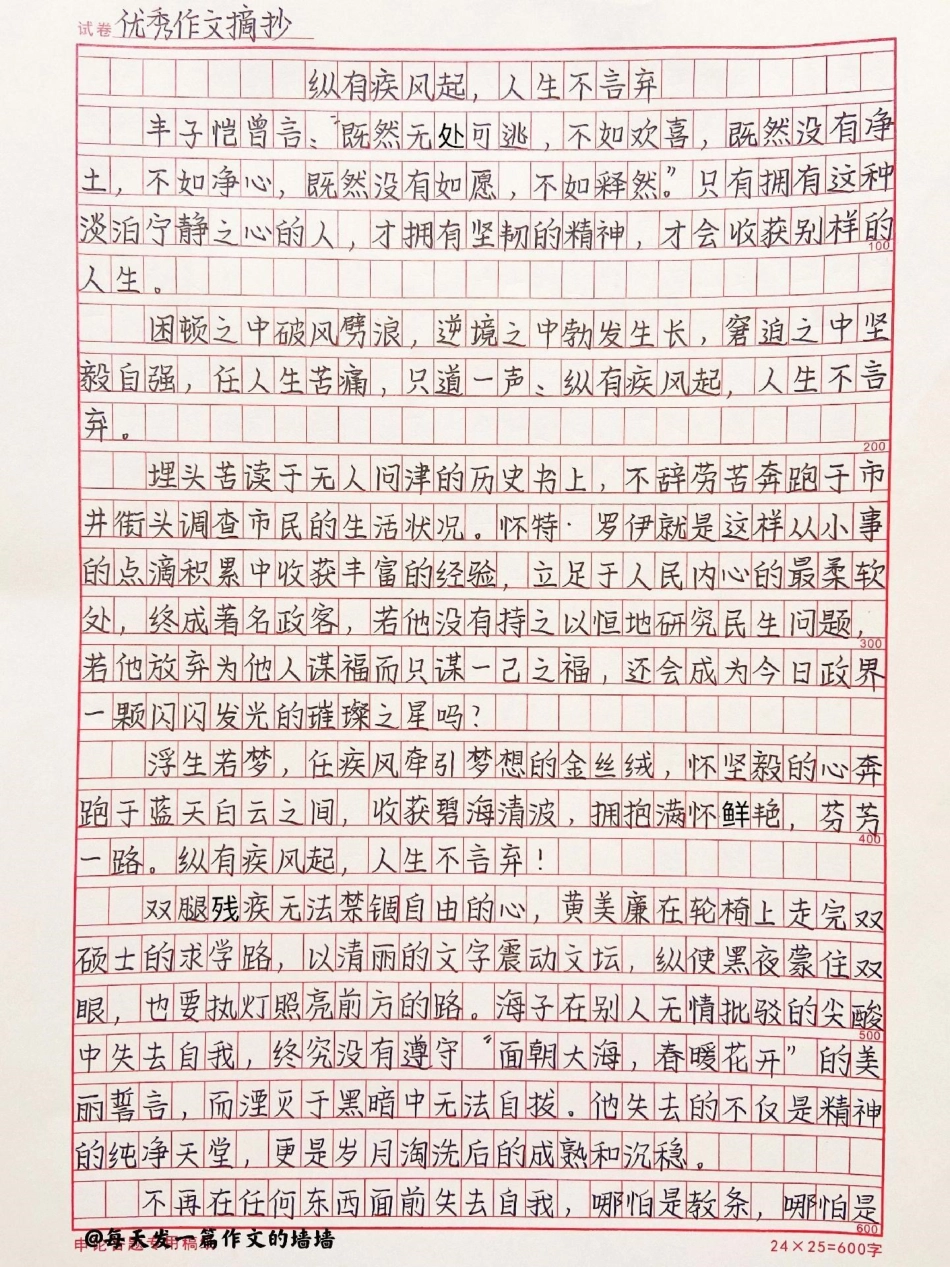 试卷 优秀作文摘抄
纵有疾风起，人生不言弃
丰子恺曾言：“既然无处可逃，不如欢喜，既然没有净
土，不如净心，既然没有如愿，不如释然。”只有拥有这种
淡泊宁静之心的人，才拥有坚韧的精神，才会收获别样的
100
人生。
困顿之中破风劈浪，逆境之中勃发生长，窘迫之中坚
毅自强，任人生苦痛，只道一声：纵有疾风起，人生不言
弃。
200
埋头苦读于无人问津的历史书上，不辞劳苦奔跑于市
井街头调查市民的生活状况。怀特·罗伊就是这样从小事
的点滴积累中收获丰富的经验，立足于人民内心的最柔软
处，终成著名政客，若他没有持之以恒地研究民生问题，
300
若他放弃为他人谋福而只谋一己之福，还会成为今日政界
一颗闪闪发光的璀璨之星吗？
浮生若梦，任疾风牵引梦想的金丝绒，怀坚毅的心奔
跑于蓝天白云之间，收获碧海清波，拥抱满怀鲜艳，芬芳
400
一路。纵有疾风起，人生不言弃！
双腿残疾无法禁锢自由的心，黄美廉在轮椅上走完双
硕士的求学路，以清丽的文字震动文坛，纵使黑夜蒙住双
眼，也要执灯照亮前方的路。海子在别人无情批驳的尖酸
500
中失去自我，终究没有遵守“面朝大海，春暖花开”的美
丽誓言，而湮灭于黑暗中无法自拔。他失去的不仅是精神
的纯净天堂，更是岁月淘洗后的成熟和沉稳。
不再在任何东西面前失去自我，哪怕是教条，哪怕是
600
@每天发一篇作文的墙墙
24×25=600字